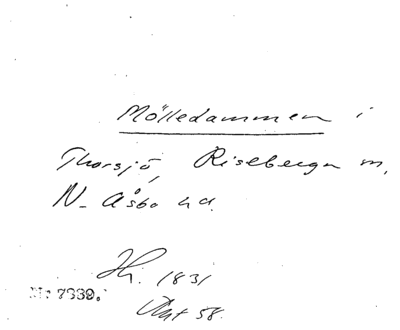 Mölledammen i
Thorsjö, Riseberga m,
N. Åsbo hd.
Hi. 1831
Nr 7339.
58.